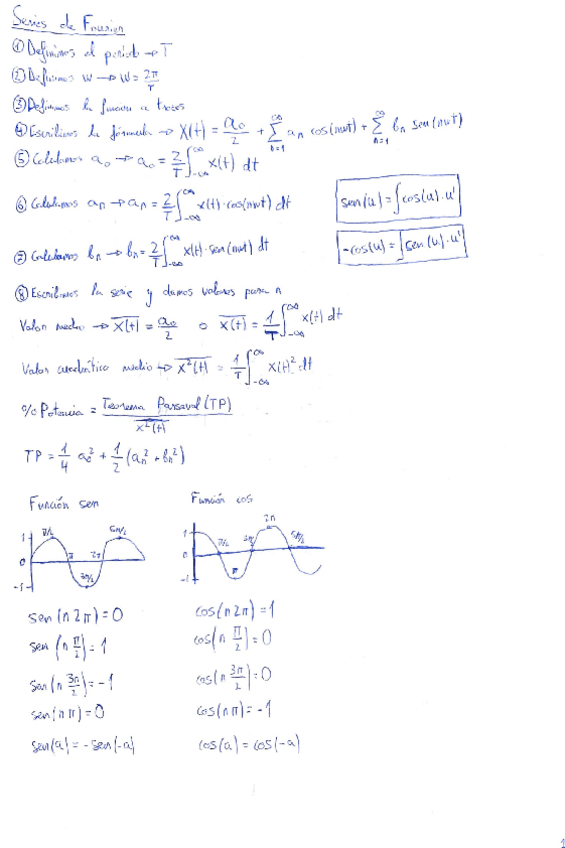 Series de Fourier
① Definimos el período → T
② Definimos w → w = 2π/T
③ Definimos la función a trozos
④ Escribimos la fórmula → X(t) = a₀/2 + ∑_{n=1}^{∞} aₙ cos(nwt) + ∑_{n=1}^{∞} bₙ sen(nwt)
⑤ Calculamos a₀ → a₀ = 2/T ∫_{-∞}^{∞} x(t) dt
⑥ Calculamos aₙ → aₙ = 2/T ∫_{-∞}^{∞} x(t)·cos(nwt) dt
sen(u) = ∫cos(u)·u'
⑦ Calculamos bₙ → bₙ = 2/T ∫_{-∞}^{∞} x(t)·sen(nwt) dt
-cos(u) = ∫sen(u)·u'
⑧ Escribimos la serie y damos valores para n
Valor medio → \overline{X(t)} = a₀/2 o \overline{X(t)} = 1/T ∫_{-∞}^{∞} x(t) dt
Valor cuadrático medio → \overline{x²(t)} = 1/T ∫_{-∞}^{∞} x(t)² dt
% Potencia = Teorema Parseval (TP) / \overline{x²(t)}
TP = 1/4 a₀² + 1/2 (aₙ² + bₙ²)
Función sen
Función cos
1 0 -1 π/2 π 3π/2 2π 5π/2
1 0 -1 π/2 π 3π/2 2π 5π/2
sen(n2π) = 0
cos(n2π) = 1
sen(n π/2) = 1
cos(n π/2) = 0
sen(n 3π/2) = -1
cos(n 3π/2) = 0
sen(nπ) = 0
cos(nπ) = -1
sen(a) = -sen(-a)
cos(a) = cos(-a)
1